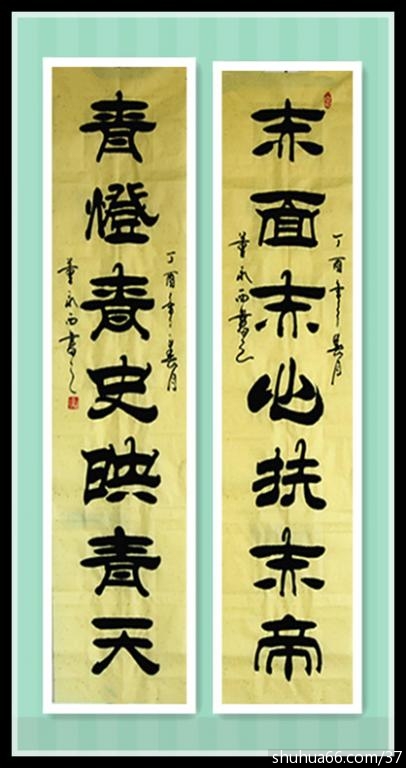 赤面赤心扶赤帝
丁酉年 月
董永西書
青燈青史映青天
丁酉年 月
董永西書之
shuhua66.com/37